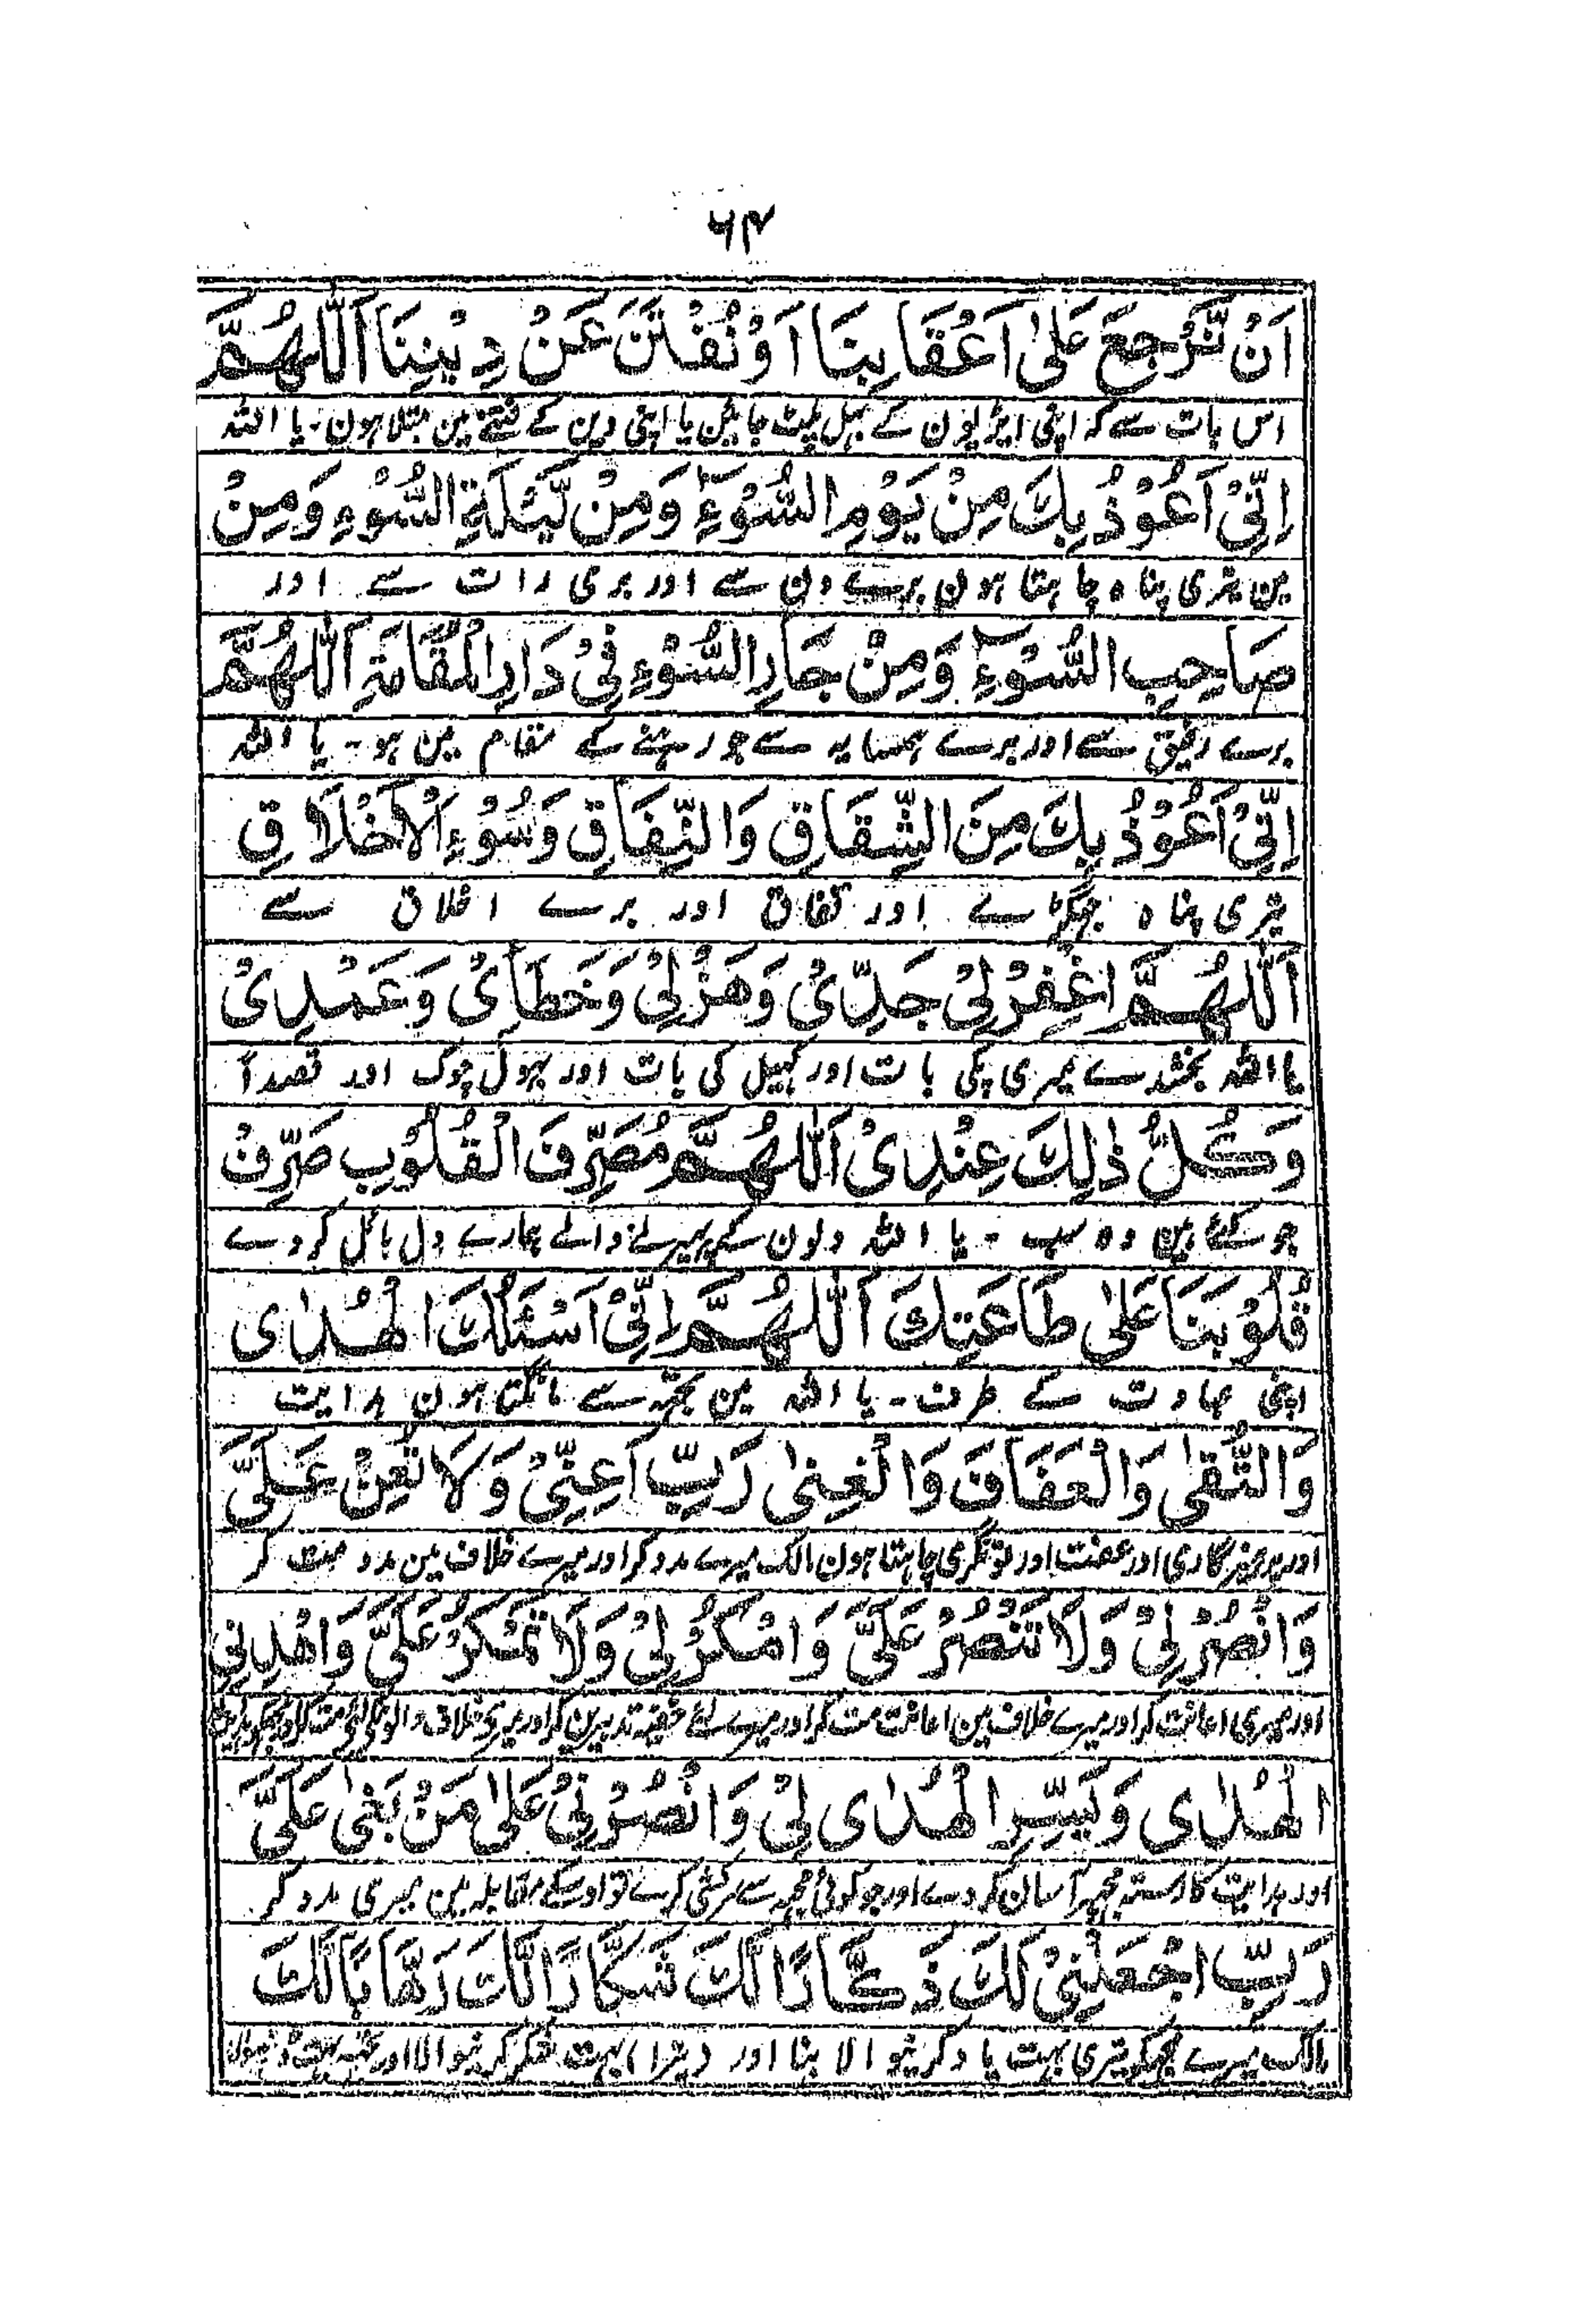 ۶۴
اَنْ نَّرْجِعَ عَلٰی اَعْقَابِنَا اَوْ نُفْتَنَ عَنْ دِیْنِنَا اَللّٰهُمَّ
اس بات سے کہ اپنی ایڑیون کے بہل پلٹ جائین یا اپنی دین کے فتنے مین مبتلا ہون ۔ یا اللہ
اِنِّیْ اَعُوْذُ بِكَ مِنْ یَوْمِ السُّوْٓءِ وَمِنْ لَّیْلَةِ السُّوْءِ وَمِنْ
مین تیری پناہ چاہتا ہون برے دن سے اور بری رات سے اور
صَاحِبِ السُّوْٓءِ وَمِنْ جَارِ السُّوْءِ فِیْ دَارِ الْمُقَامَةِ اَللّٰهُمَّ
برے رفیق سے اور برے ہمسایہ سے جو رہنے کے مقام مین ہو ۔ یا اللہ
اِنِّیْ اَعُوْذُ بِكَ مِنَ الشِّقَاقِ وَالنِّفَاقِ وَسُوْءِ الْاَخْلَاقِ
تیری پناہ جہگڑے اور نفاق اور برے اخلاق سے
اَللّٰهُمَّ اغْفِرْ لِیْ جَدِّیْ وَهَزْلِیْ وَخَطَاْیْ وَعَمْدِیْ
یا اللہ بخشدے میری پکی بات اور کہیل کی بات اور بہول چوک اور قصداً
وَكُلُّ ذٰلِكَ عِنْدِیْ اَللّٰهُمَّ مُصَرِّفَ الْقُلُوْبِ صَرِّفْ
جو کئے ہین وہ سب ۔ یا اللہ دلون کے پہیرنے والے ہمارے دل مائل کر دے
قُلُوْبَنَا عَلٰی طَاعَتِكَ اَللّٰهُمَّ اِنِّیْ اَسْئَلُكَ الْهُدٰی
اپنی عبادت کے طرف ۔ یا اللہ مین تجہہ سے مانگتا ہون ہدایت
وَالتُّقٰی وَالْعَفَافَ وَالْغِنٰی رَبِّ اَعِنِّیْ وَلَا تُعِنْ عَلَیَّ
اور پرہیزگاری اور عفت اور تونگری چاہتا ہون مالک میرے مدد کر اور میرے خلاف مین مدد مت کر
وَانْصُرْ لِیْ وَلَا تَنْصُرْ عَلَیَّ وَامْكُرْ لِیْ وَلَا تَمْكُرْ عَلَیَّ وَاهْدِنِیْ
اور میری اعانت کر اور میرے خلاف مین اعانت مت کر اور میرے لئے خفیہ تدبیرین کر اور میری خلاف والونکی لئی مت کر
الْهُدٰی وَیَسِّرِ الْهُدٰی لِیْ وَانْصُرْنِیْ عَلٰی مَنْ بَغٰی عَلَیَّ
اور ہدایت کا رستہ مجہپر آسان کر دے اور جو کوئی مجہہ سے سرکشی کرے تو اوسکے مقابلہ مین میری مدد کر
رَبِّ اجْعَلْنِیْ لَكَ ذَكَّارًا لَّكَ شَكَّارًا لَّكَ رَهَّابًا لَّكَ
مالک میرے مجہکو تیری بہت یاد کرنیوالا بنا اور بہت شکر کرنیوالا اور